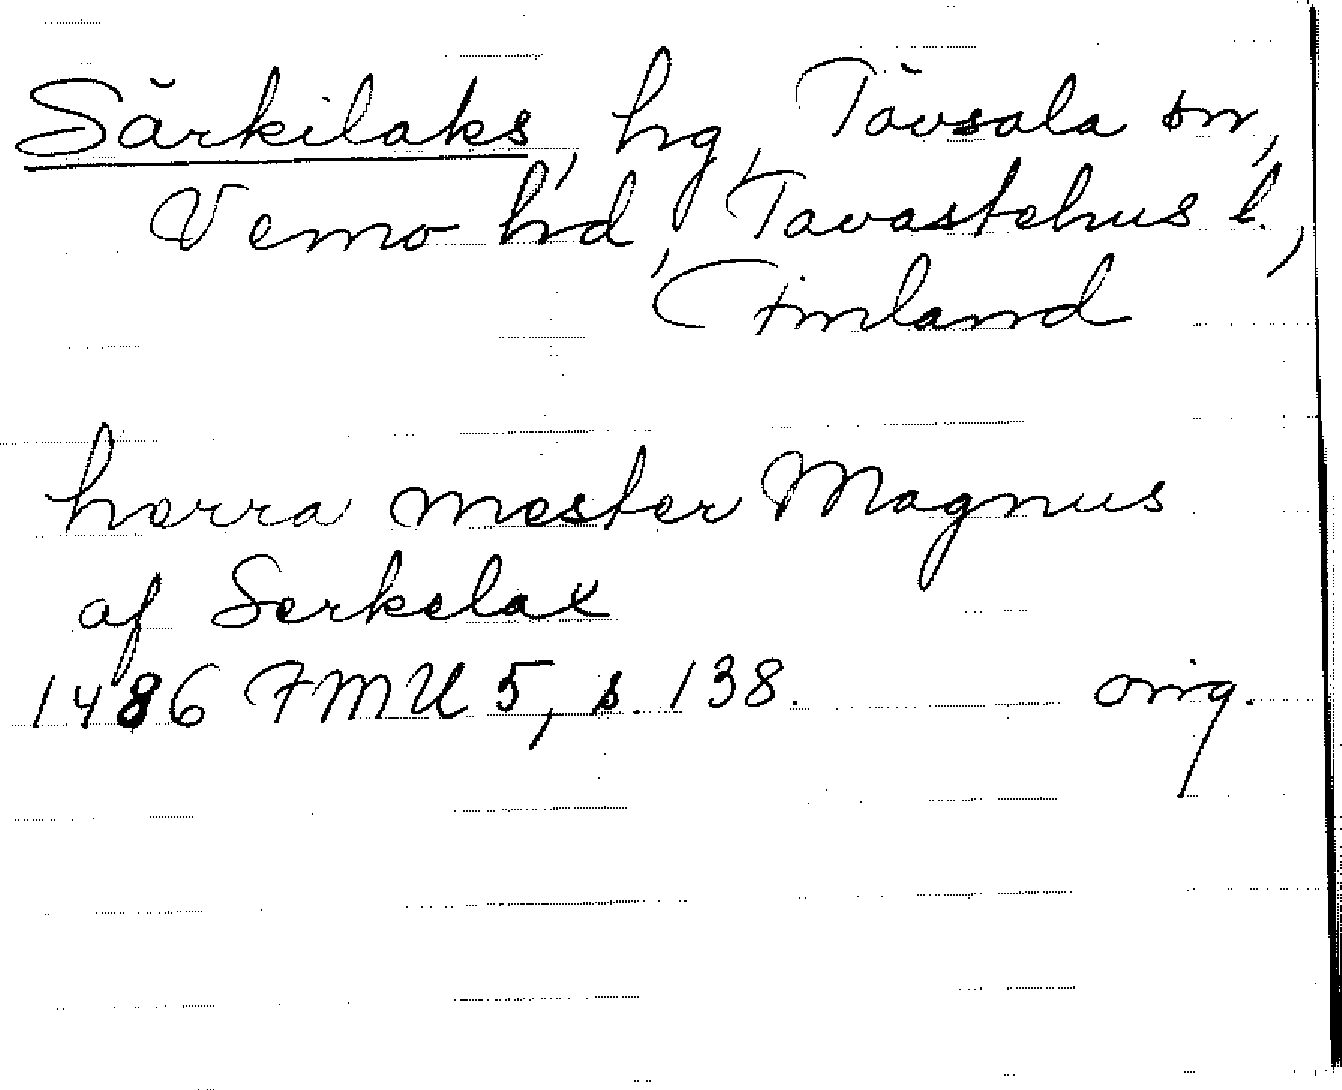 Särkilaks, hg, Tövsala sn,
Vemo hd, Tavastehus l.,
Finland
herra mester Magnus
af Serkelax
1486 FMU 5, s. 138. orig.